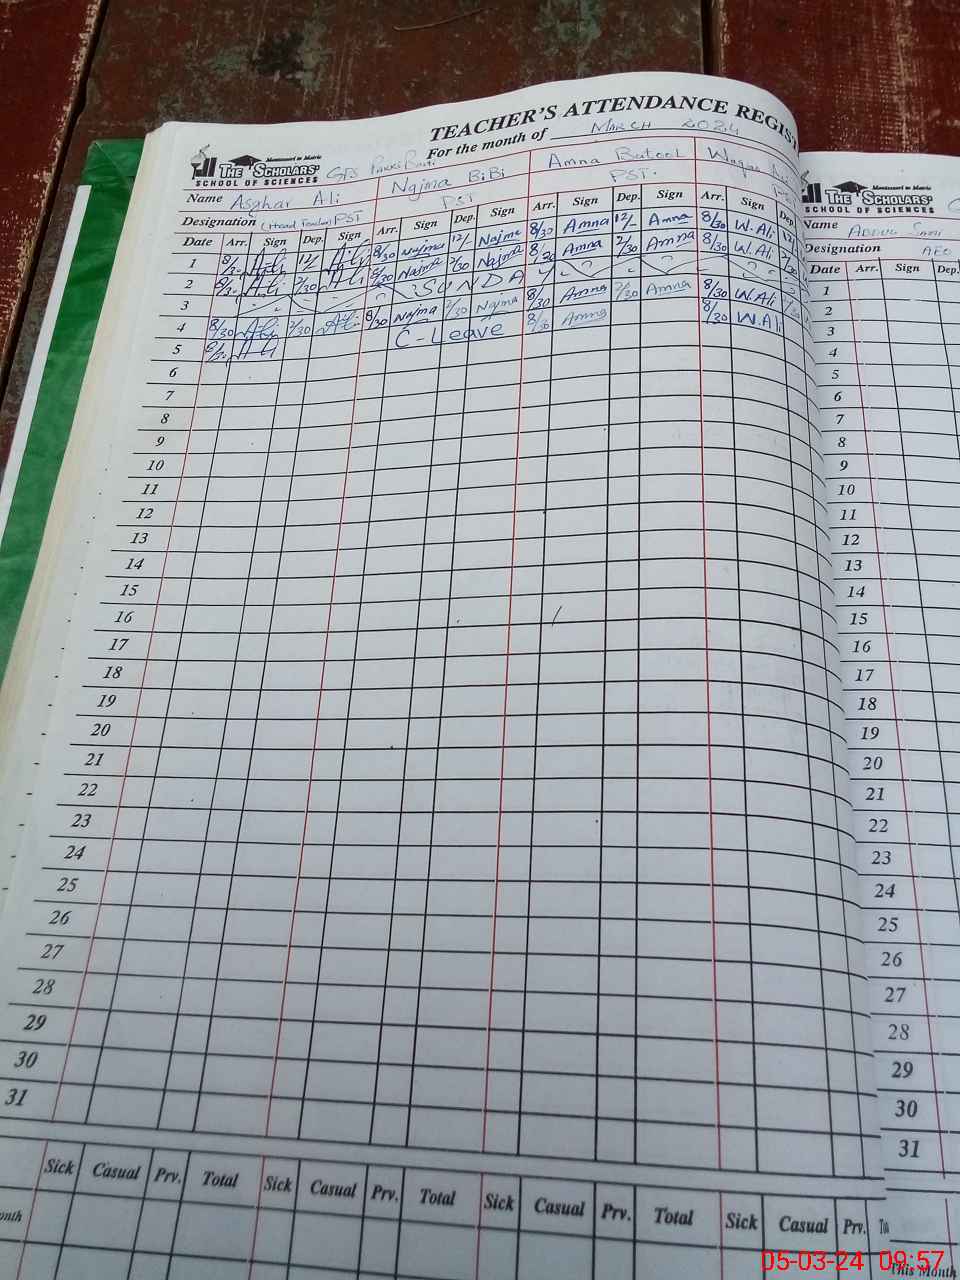 TEACHER'S ATTENDANCE REGIS
For the month of MARCH 2024
Montessori to Matric
THE SCHOLARS'
SCHOOL OF SCIENCES
GPS
Name Asghar Ali Najma BiBi Amna Batool Waqar
Designation (Head Teacher) PST PST PST.
Date Arr. Sign Dep. Sign Arr. Sign Dep. Sign Arr. Sign Dep. Sign Arr. Sign Dep
1 8/30 Ali 12/ Ali 8/30 Najma 12/- Najma 8/30 Amna 12/- Amna 8/30 W.Ali 12/
2 8/30 Ali 2/30 Ali 8/30 Najma 2/30 Najma 8/30 Amna 2/30 Amna 8/30 W.Ali 2/30
3 SUNDAY
4 8/30 Ali 2/30 Ali 8/30 Najma 2/30 Najma 8/30 Amna 2/30 Amna 8/30 W.Ali 2/30
5 8/30 Ali C-Leave 8/30 Amna 8/30 W.Ali
6
7
8
9
10
11
12
13
14
15
16
17
18
19
20
21
22
23
24
25
26
27
28
29
30
31
Sick Casual Prv. Total Sick Casual Prv. Total Sick Casual Prv. Total Sick Casual Prv.
onth
Montessori to Matric
THE SCHOLARS'
SCHOOL OF SCIENCES
Name Abdul Sami
Designation AEO
Date Arr. Sign Dep.
1
2
3
4
5
6
7
8
9
10
11
12
13
14
15
16
17
18
19
20
21
22
23
24
25
26
27
28
29
30
31
This Month
05-03-24 09:57